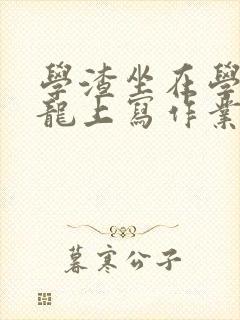 學渣坐在學
龍上寫作業
暮寒公子